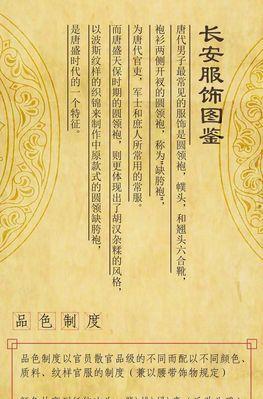 长安服饰图鉴
唐代男子最常见的服饰是圆领袍，幞头，和翘头六合靴，
袍衫两侧开衩的圆领袍，称为"缺胯袍"，
为唐代官吏，军士和庶人所常用的常服
而唐盛天保时期的圆领袍，则更体现出了胡汉杂糅的风格，
以波斯纹样的织锦来制作中原款式的圆领缺胯袍，
是唐盛时代的一个特征。
品色制度
品色制度以官员散官品级的不同而配以不同颜色、
质料、纹样官服的制度（兼以腰带饰物规定）